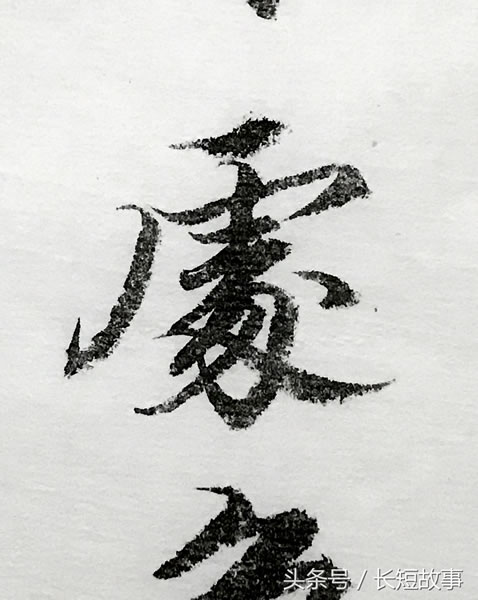 處
头条号 / 长短故事